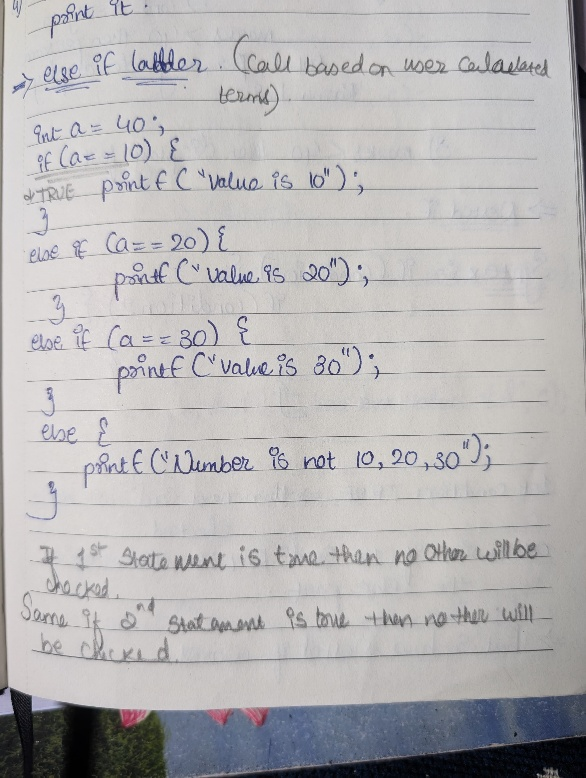 4)
print it.
=> else if ladder. (Call based on user calculated
terms).
int a = 40;
if (a == 10) {
TRUE printf ("value is 10");
}
else if (a == 20) {
printf ("value is 20");
}
else if (a == 30) {
printf ("value is 30");
}
else {
printf ("Number is not 10, 20, 30");
}
If 1st Statement is true then no other will be
checked.
Same if 2nd statament is true then no ther will
be checked.